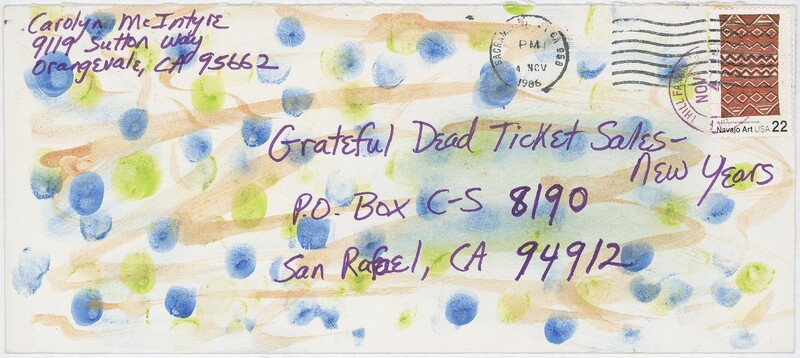 Carolyn McIntyre
9119 Sutton Way
Orangevale, CA 95662
PM
4 NOV
1986
NOV
Navajo Art USA 22
Grateful Dead Ticket Sales-
New Years
P.O. Box C-S 8190
San Rafael, CA 94912